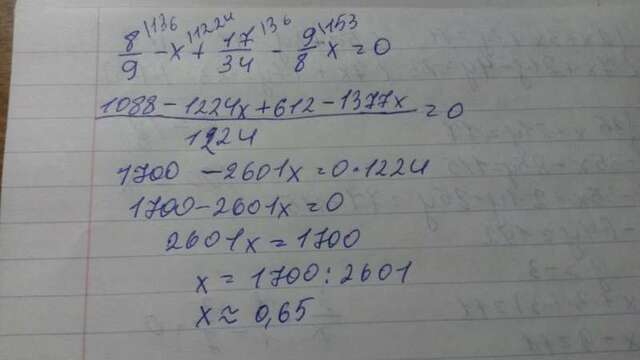 8/9 \136 - x \1224 + 17/34 \36 - 9/8 \153 x = 0
1088 - 1224x + 612 - 1377x / 1224 = 0
1700 - 2601x = 0·1224
1700 - 2601x = 0
2601x = 1700
x = 1700 : 2601
x ≈ 0,65